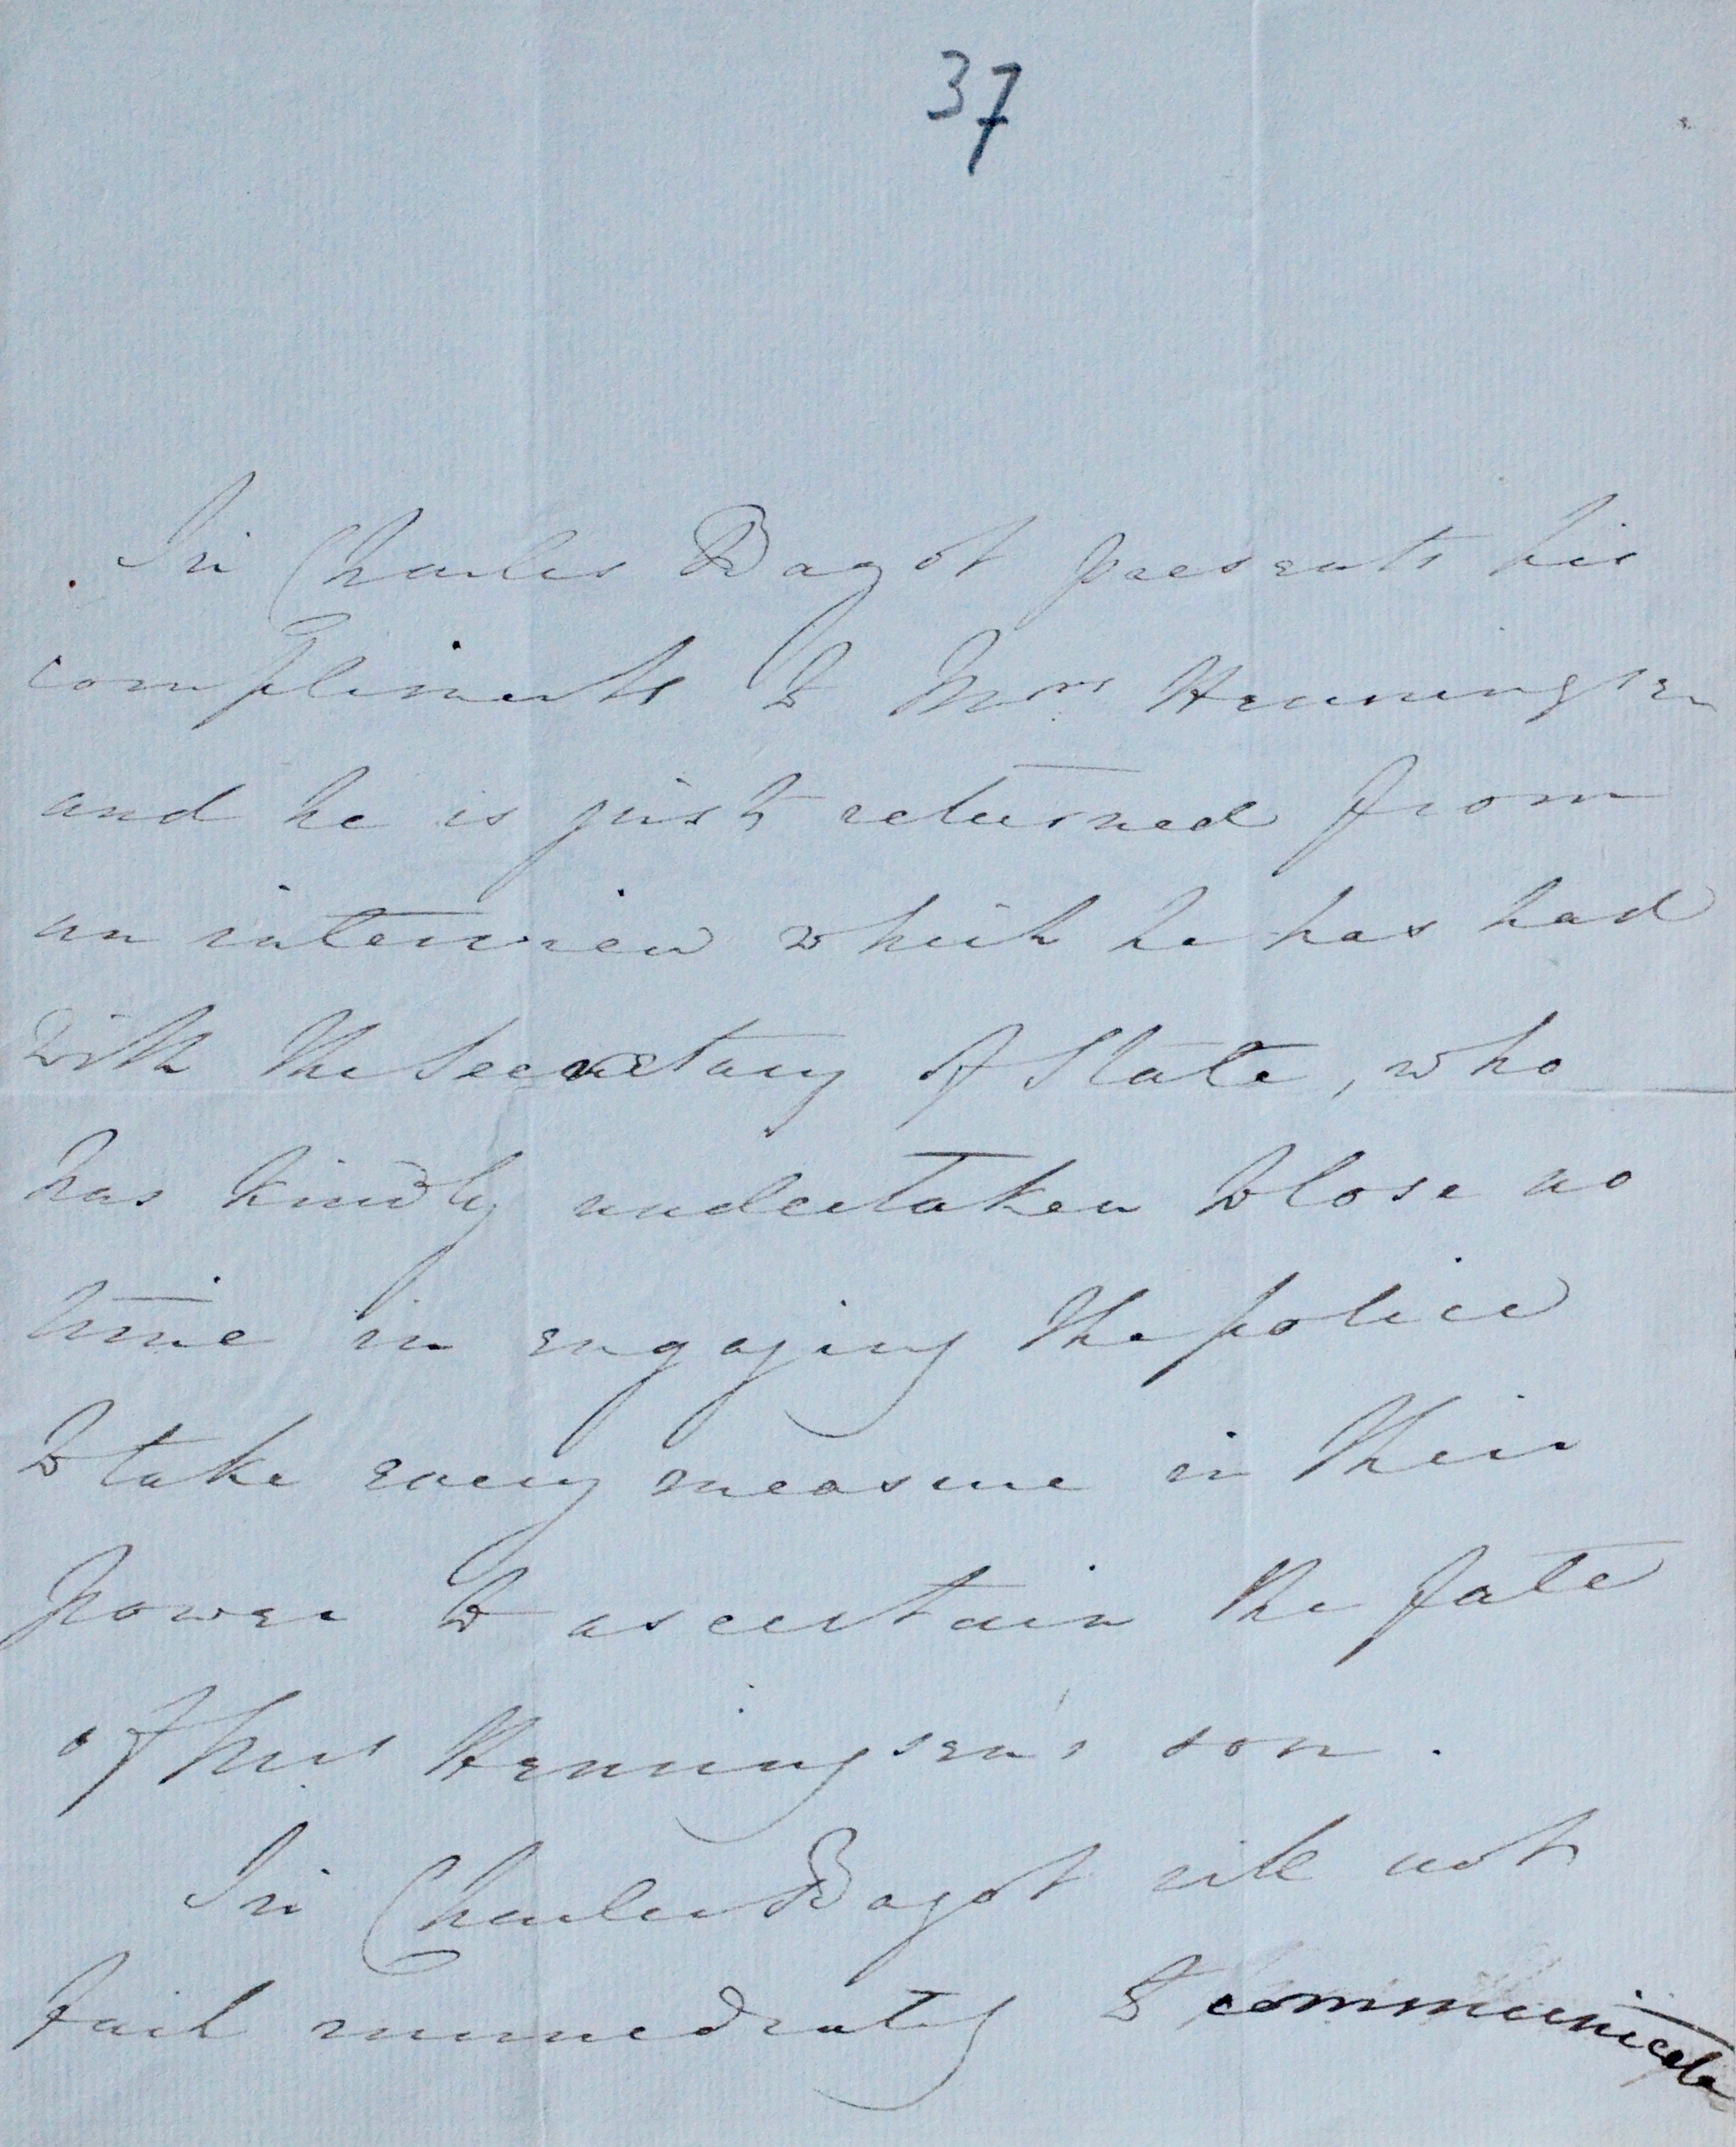 37
Sir Charles Bagot presents his
compliments to Mrs Henningsen
and he is just returned from
an interview which he has had
with the Secretary of State, who
has kindly undertaken to lose no
time in engaging the police
to take every measure in their
power to ascertain the fate
of Mrs Henningsen's son.
Sir Charles Bagot will not
fail immediately to communicate